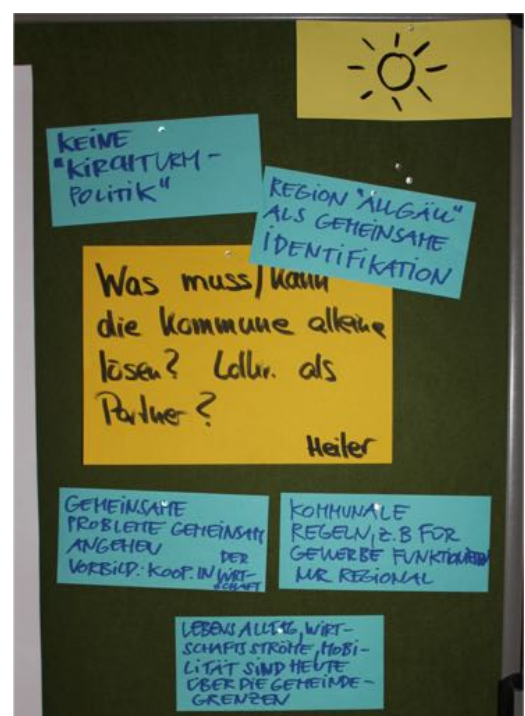 KEINE
"KIRCHTURM-
POLITIK"
REGION "ALLGÄU"
ALS GEMEINSAME
IDENTIFIKATION
Was muss/kann
die Kommune alleine
lösen? Ldkr. als
Partner?
Heiler
GEMEINSAME
PROBLEME GEMEINSAM
ANGEHEN
VORBILD: KOOP. IN DER WIRT-
SCHAFT
KOMMUNALE
REGELN, z.B FÜR
GEWERBE FUNKTIONIEREN
NUR REGIONAL
LEBENSALLTAG, WIRT-
SCHAFTSSTRÖME, MOBI-
LITÄT SIND HEUTE
ÜBER DIE GEMEINDE-
GRENZEN